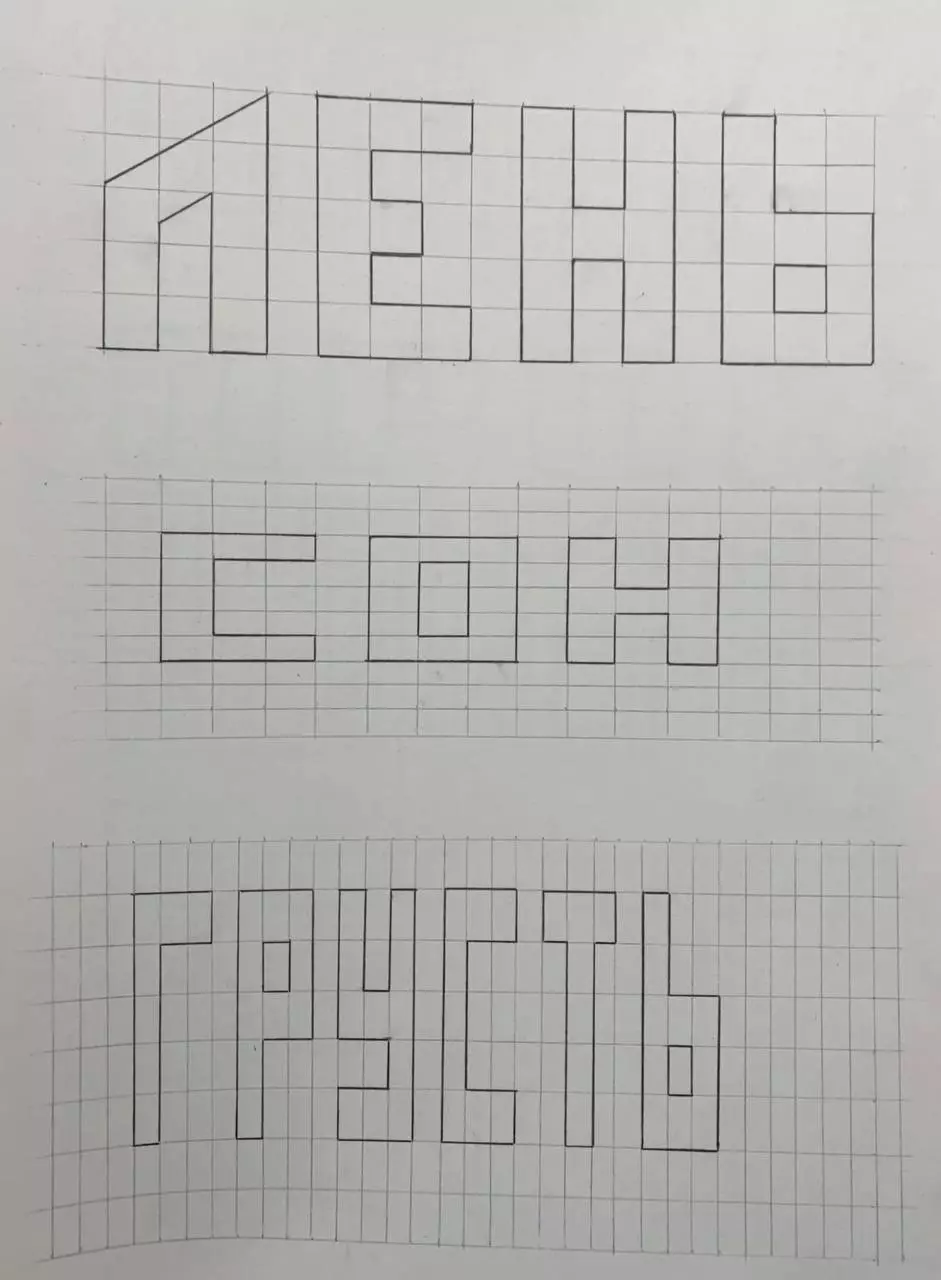 ЛЕНЬ
СОН
ГРУСТЬ